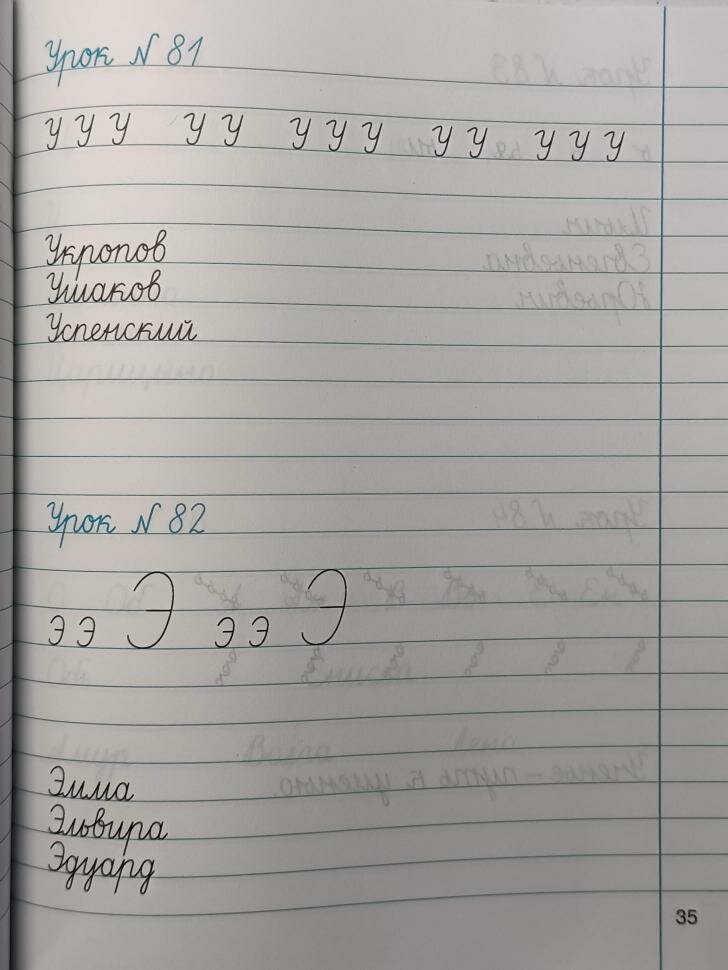 Урок N 81
У У У У У У У У У У У У У
Укропов
Ушаков
Успенский
Урок N 82
э э Э э э Э
Эмма
Эльвира
Эдуард
35